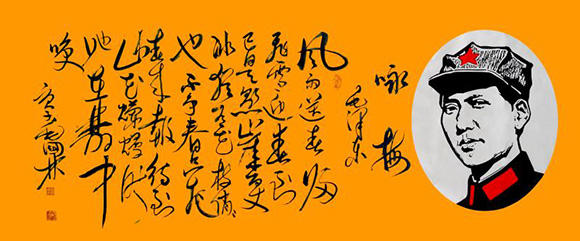 咏梅
毛泽东
风雨送春归
飞雪迎春到
已是悬崖百丈
冰犹有花枝俏俏
也不争春只把
春来报待到
山花烂漫时
她在丛中
笑